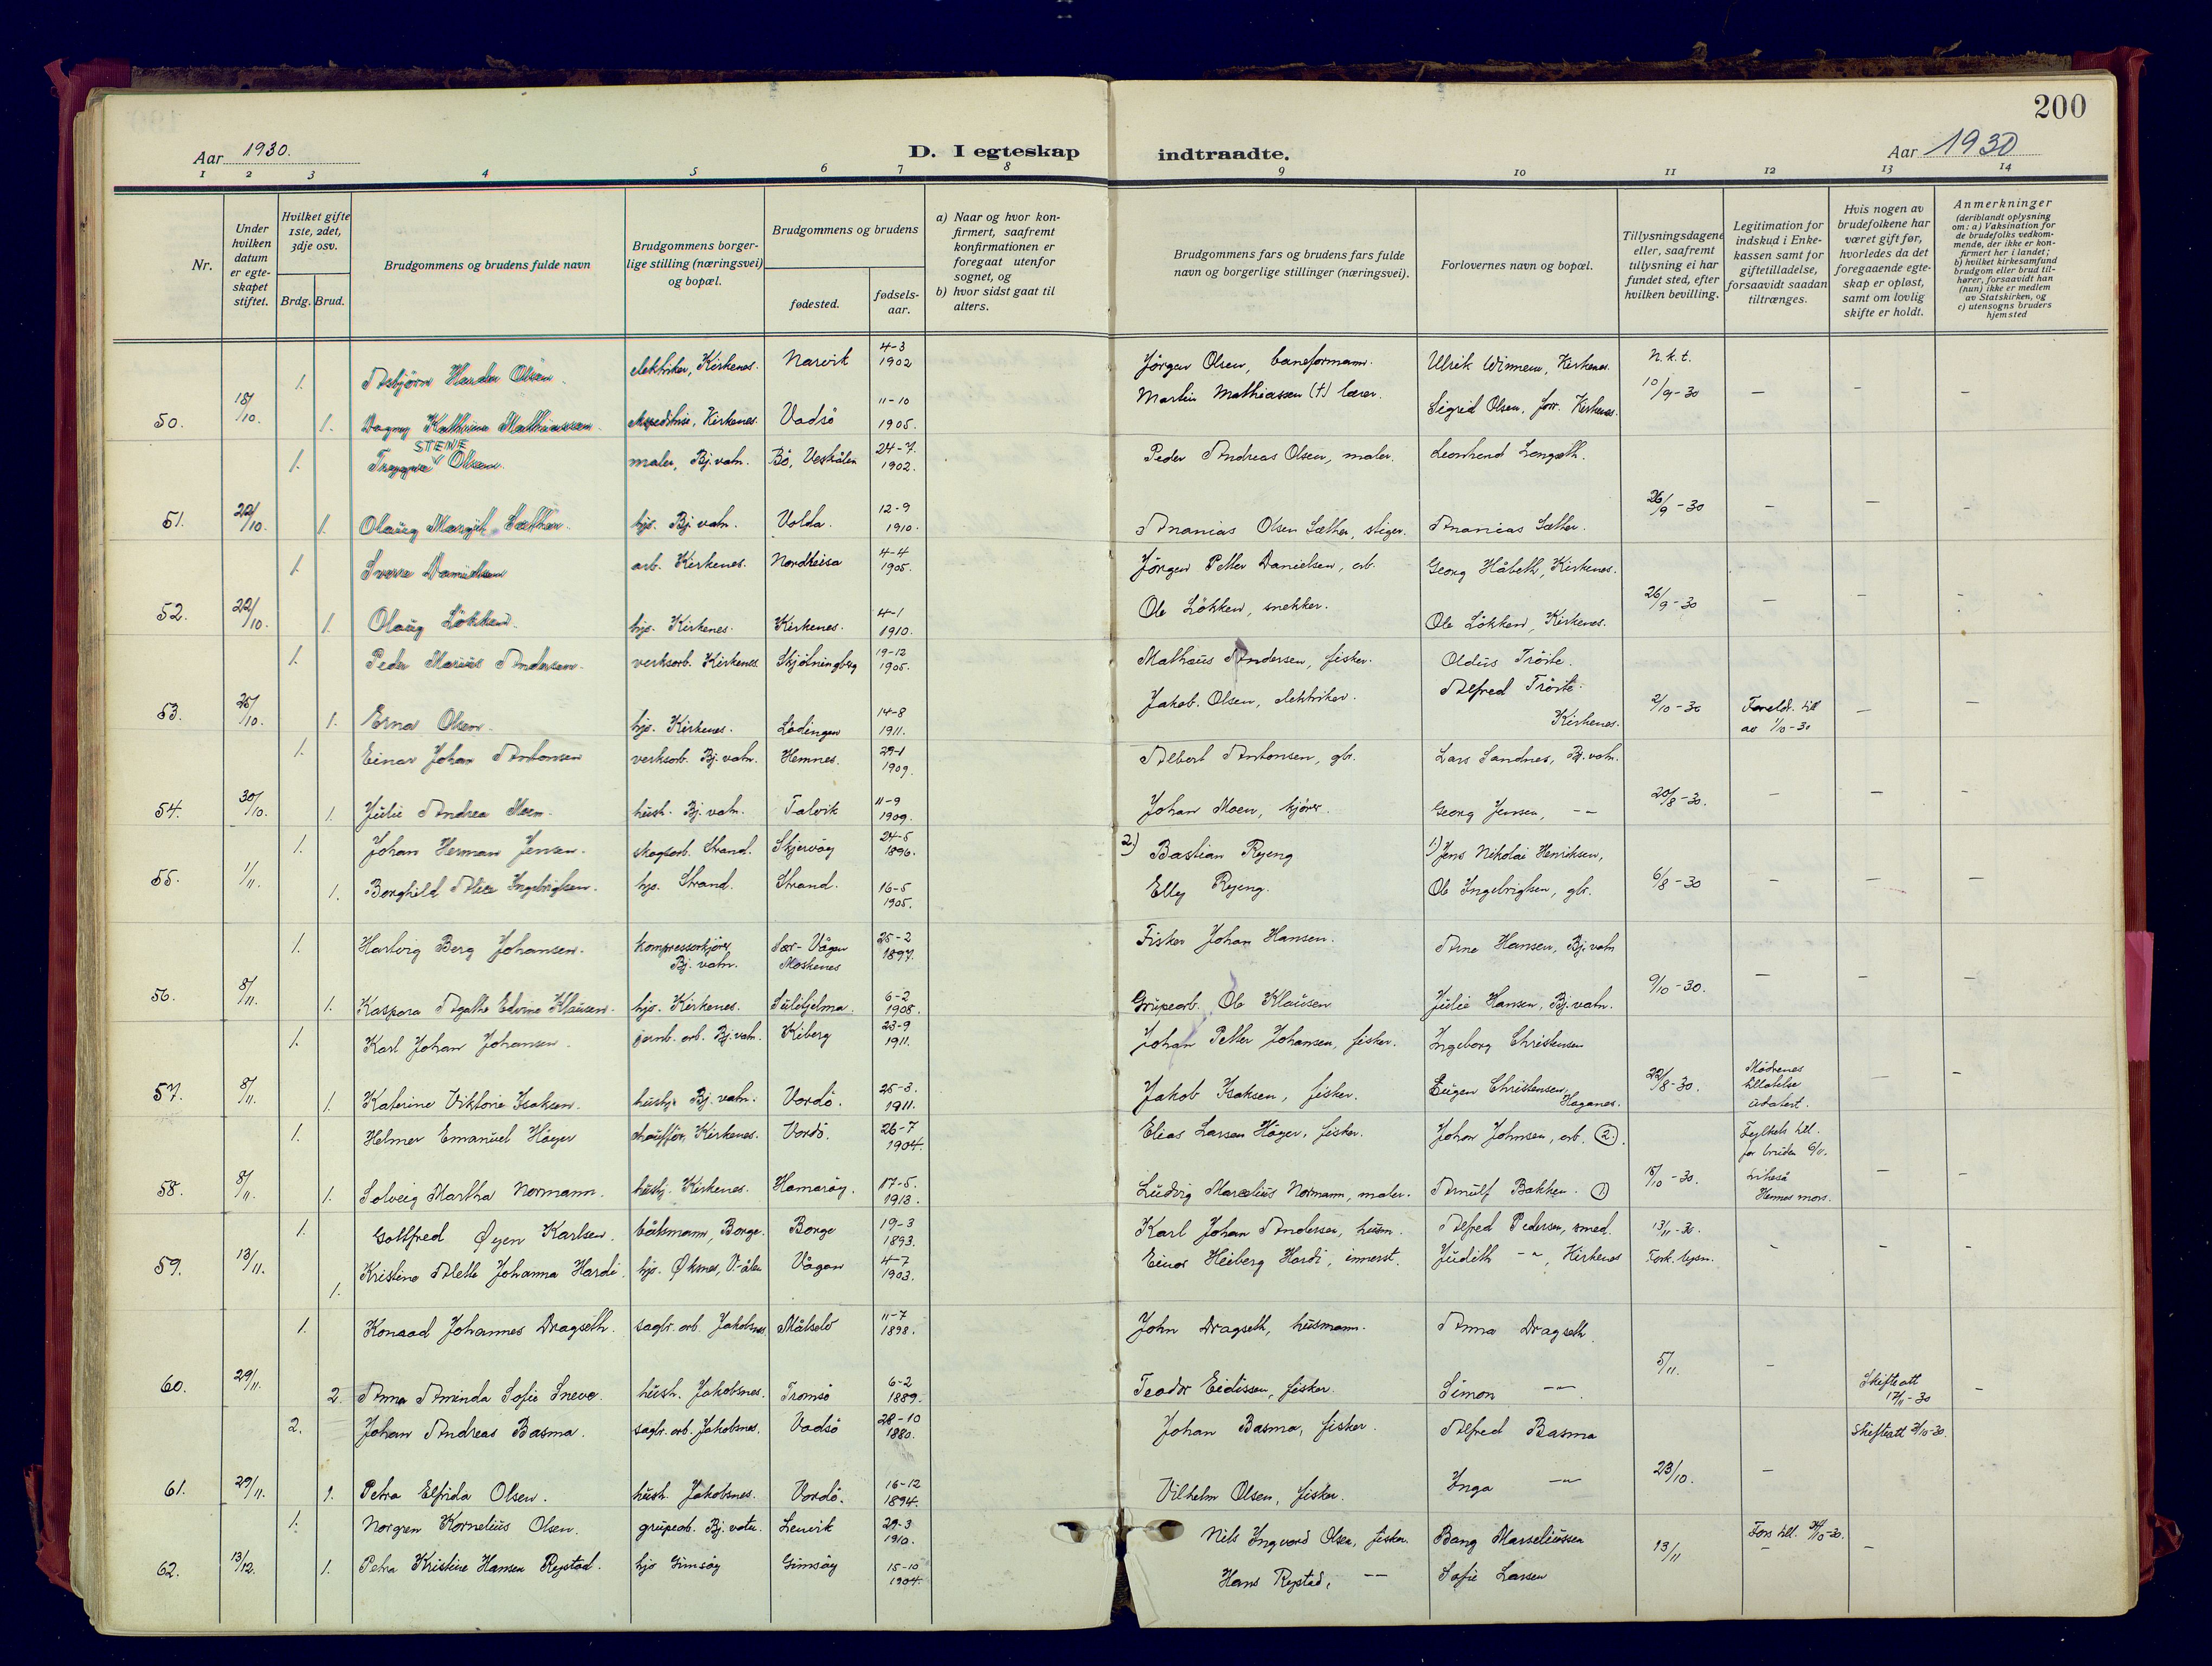 200
Aar 1930.
D. I egteskap indtraadte.
Aar 1930
1 2 3 4 5 6 7 8 9 10 11 12 13 14
Nr.
Under hvilken datum er egteskapet stiftet.
Hvilket gifte 1ste, 2det, 3dje osv.
Brdg. Brud.
Brudgommens og brudens fulde navn
Brudgommens borgerlige stilling (næringsvei) og bopæl.
Brudgommens og brudens
fødested.
fødselsaar.
a) Naar og hvor konfirmert, saafremt konfirmationen er foregaat utenfor sognet, og
b) hvor sidst gaat til alters.
Brudgommens fars og brudens fars fulde navn og borgerlige stillinger (næringsvei).
Forlovernes navn og bopæl.
Tillysningsdagene eller, saafremt tillysning ei har fundet sted, efter hvilken bevilling.
Legitimation for indskud i Enkekassen samt for giftetilladelse, forsaavidt saadan tiltrænges.
Hvis nogen av brudefolkene har været gift før, hvorledes da det foregaaende egteskap er opløst, samt om lovlig skifte er holdt.
Anmerkninger (deriblandt oplysning om: a) Vaksination for de brudefolks vedkommende, der ikke er konfirmert her i landet; b) hvilket kirkesamfund brudgom eller brud tilhører, forsaavidt han (hun) ikke er medlem av Statskirken, og c) utensogns bruders hjemsted
1. Asbjörn Harder Olsen elektriker, Kirkenes. Narvik 4-3 1902 Jörgen Olsen, baneformann. Ulrik Winnem, Kirkenes. N.k.t.
50. 18/10. 1. Dagny Kathrine Mathiassen ekspeditrise, Kirkenes. Vadsö 11-10 1905. Martin Mathiassen (†) lærer. Sigrid Olsen, forr. Kirkenes. 10/9-30 — – –
1. Tryggve STENE Olsen. maler, Bj.vatn. Bö, Vesterålen 24-7. 1902. Peder Andreas Olsen, maler. Leonhard Langseth.
51. 22/10. 1. Olaug Margit Sæther. hjv. Bj.vatn. Volda. 12-9 1910. Ananias Olsen Sæther, stiger. Ananias Sæther. 26/9-30 – – –
1. Sverre Danielsen arb. Kirkenes. Nordreisa 4-4 1905. Jörgen Petter Danielsen, arb. Georg Håbeth, Kirkenes.
52. 22/10. 1. Olaug Lökken. hjv. Kirkenes. Kirkenes. 4-1 1910. Ole Lökken, snekker. Ole Lökken, Kirkenes. 26/9-30 – – –
1. Peder Marius Andersen. verksarb. Kirkenes Skjötningberg 19-12 1905. Mathæus Andersen, fisker. Oldus Tröite.
53. 25/10. 1. Erna Olsen. hjv. Kirkenes. Lödingen 14-8 1911. Jakob. Olsen, elektriker. Alfred Tröite. Kirkenes. 2/10-30 Foreldr. till av 1/10-30 – –
1. Einar Johan Antonsen verksarb. Bj.vatn. Hemnes. 29-1 1909. Albert Antonsen, gbr. Lars Sandnes, Bj.vatn.
54. 30/10. 1. Julie Andrea Moen. hush. Bj.vatn. Talvik 11-9 1909. Johan Moen, kjörer. Georg Jensen, — 20/8-30. – – –
1. Johan Herman Jensen. skogsarb. Strand. Skjervöy 24-5 1896. 2) Bastian Ryeng 1) Jens Nikolai Henriksen,
55. 1/11. 1. Borghild Alice Ingebrigtsen. hjv. Strand. Strand. 16-5 1905. Elly Ryeng. Ole Ingebrigtsen, gbr. 6/8-30 – – –
1. Hartvig Berg Johansen. kompressorkjörer, Bj.vatn. Sør-Vågen Moskenes 25-2 1897. Fisker Johan Hansen. Arne Hansen, Bj.vatn
56. 8/11. 1. Kaspara Agathe Edvine Klausen. hjv. Kirkenes. Sulitjelma. 6-2 1908. Grupearb. Ole Klausen Julie Hansen, Bj.vatn. 9/10-30. – – –
1. Karl Johan Johansen. jernb. arb. Bj.vatn. Kiberg 23-9 1911. Johan Petter Johansen, fisker. Ingeborg Christensen
57. 8/11. 1. Katerine Viktorie Isaksen. hushj. Bj.vatn. Vardö. 25-3. 1911. Jakob Isaksen, fisker. Eugen Christensen, Haganes. 22/8-30. Mödrenes tillatelse udatert. – –
1. Helmer Emanuel Höyer chaufför, Kirkenes. Vardö. 26-7 1904. Elias Larsen Höyer, fisker. Johan Johnsen, arb. 2. Fylkets till. for bruden 6/11.
58. 8/11. 1. Solveig Martha Normann. hushj. Kirkenes. Hamaröy. 17-5. 1913. Ludvig Marcelius Normann, maler. Arnulf Bakken. 1 15/10-30. Likeså Hennes mors. – –
1. Gottfred Øyen Karlsen. båtsmann, Borge. Borge 19-3 1893. Karl Johan Andersen, husm. Alfred Pedersen, smed. 13/11-30.
59. 13/11. 1. Kristine Alette Johanna Hardi. hjv. Øksnes, V.ålen Vågan 4-7 1903. Einar Heiberg Hardi, innerst. Judith –"–, Kirkenes Fork. lysn. – – –
1. Konrad Johannes Dragseth. sagbr. arb. Jakobsnes. Målselv 11-7 1898. John Dragseth, husmann. Anna Dragseth.
60. 29/11. 2. Anna Aminda Sofie Sneve. hush. Jakobsnes. Tromsö 6-2 1889. Teodor Eidissen, fisker. Simon –"– 5/11. – Skifteatt 17/11-30 –
2. Johan Andreas Basma. sagbr. arb. Jakobsnes. Vadsö 28-10 1880. Johan Basma, fisker. Alfred Basma Skifteatt 3/10-30.
61. 29/11. 1. Petra Elfrida Olsen. hush. Jakobsnes. Vardö. 16-12 1894. Vilhelm Olsen, fisker. Inga –"– 23/10. –
1. Norgren Kornelius Olsen. grupearb. Bj.vatn. Lenvik 29-3 1910. Nils Ingvard Olsen, fisker. Bang Marseliussen Fors till.
62. 13/12. 1. Petra Kristine Hansen Rystad. hjv Gimsöy Gimsöy 15-10 1904. Hans Rystad, –"– Sofie Larsen 13/11 – –